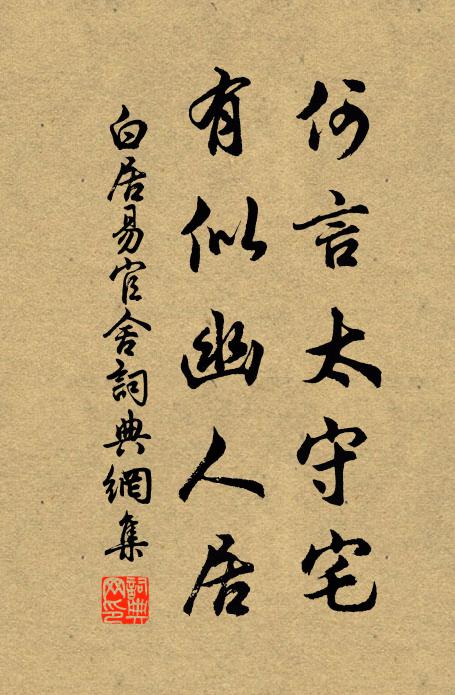 何言太守宅
有似幽人居
白居易官舍詞典網集
詞典
网印